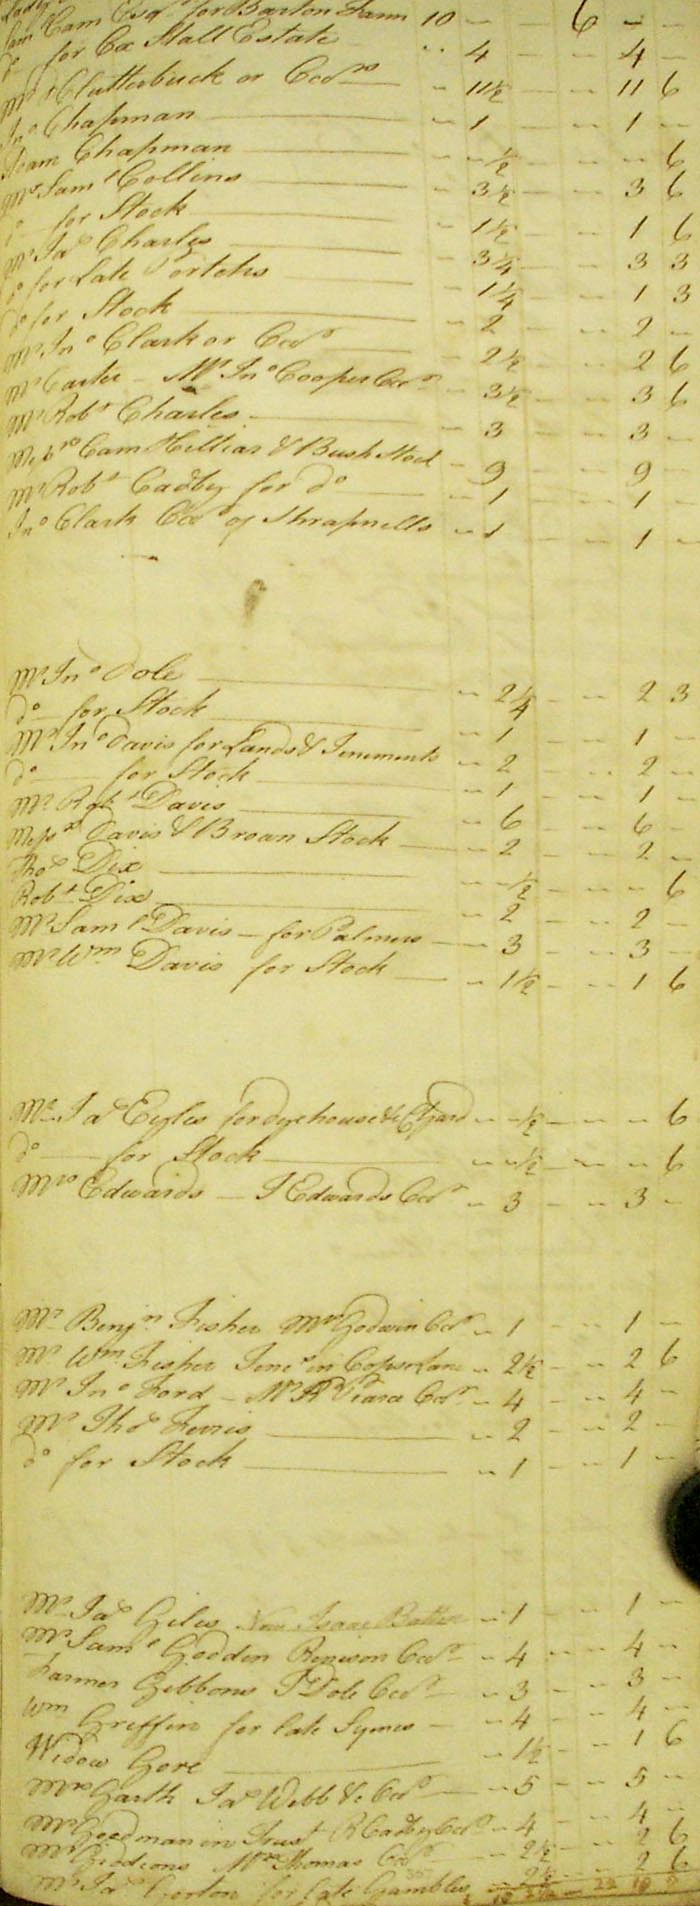 Cam Esqr for Barton Farm 10 — — 6 — —
do for Cox Stall Estate .. 4 — — 4 —
Mr Clutterbuck or Occrs — 11½ — — 11 6
Jno Chapman — 1 — 1 —
Chapman — ½ — 6
Mr Saml Collins — 3½ — 3 6
do for Stock — 1½ — 1 6
Mr Jas Charles — 3¼ — 3 3
do for Late Portchs — 1¼ — 1 3
do for Stock — 2 — 2 —
Mr Jno Clark or Occr — 2½ — 2 6
Mr Carter — Mr Jno Cooper Occr — 3½ — 3 6
Mr Robt Charles — 3 — 3 —
Messrs Cam Hillier & Bush Stock — 9 — 9 —
Mr Robt Cadby for do — 1 — 1 —
Jno Clark Occr of Shrapnells — 1 — 1 —
Mr Jno Dole — 2¼ — 2 3
do for Stock — 1 — 1 —
Mr Jno Davis for Lands & Tenements — 2 — 2 —
do — for Stock — 1 — 1 —
Mr Robt Davis — 6 — 6 —
Messrs Davis & Broan Stock — 2 — 2 —
Thos Dix — ½ — 6
Robt Dix — 2 — 2 —
Mr Saml Davis — for Palmers — 3 — 3 —
Mr Wm Davis for Stock — 1½ — 1 6
Mr Jas Eyles for dyehouse & — ½ — 6
do — for Stock — ½ — 6
Mrs Edwards — J Edwards Occr — 3 — 3 —
Mr Benjn Fisher Mr Godwin Occr — 1 — 1 —
Mr Wm Fisher Tenet in Copse Lane — 2½ — 2 6
Mr Jno Ford — Mr Pearce Occr — 4 — 4 —
Mr Thos Ferris — 2 — 2 —
do for Stock — 1 — 1 —
Mr Jas Giles Now Isaac Batten — 1 — 1 —
Mr Saml Godden Renison Occr — 4 — 4 —
Farmer Gibbons J Dole Occr — 3 — 3 —
Wm Griffin for late Symes — 4 — 4 —
Widow Gore — 1½ — 1 6
Mrs Garth Jas Webb &c Occr — 5 — 5 —
Mr Goodman in Trust R Cadby Occr — 4 — 4 —
Mr Giddeons Mrs Thomas Occr — 2½ — 2 6
Mr Jas Gorton for late Gambles — 2½ — 2 6